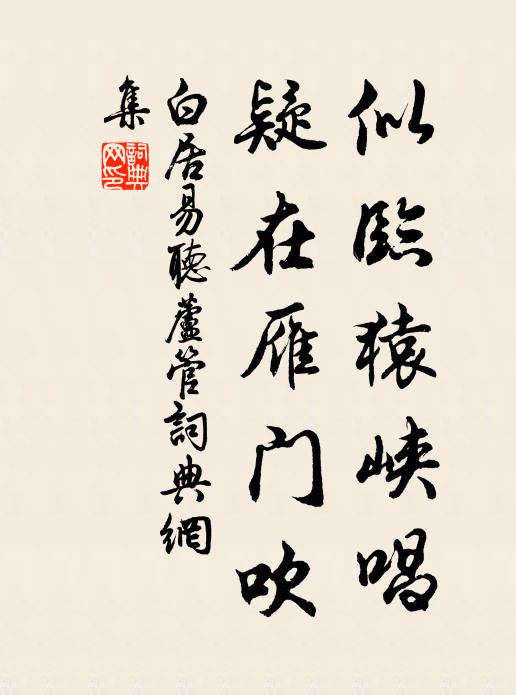 似臨猿峽唱
疑在雁门吹
白居易聽蘆管詞典網
集
詞典
网印